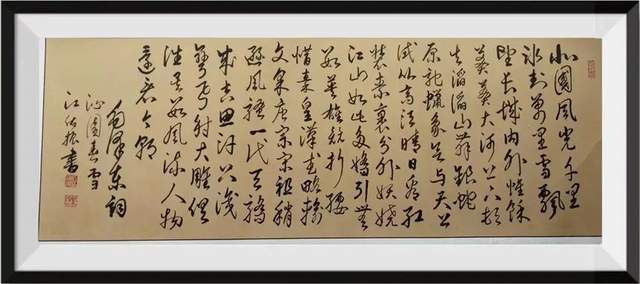 北國風光千里
冰封萬里雪飄
望長城内外惟餘
莽莽大河上下頓
失滔滔山舞銀蛇
原馳蠟象欲与天公
試比高須晴日看紅
裝素裹分外妖嬈
江山如此多嬌引無
數英雄競折腰
惜秦皇漢武略輸
文采唐宗宋祖稍
遜風騷一代天驕
成吉思汗只識
彎弓射大雕俱
往矣數風流人物
還看今朝
毛澤東詞
沁園春雪
江振書